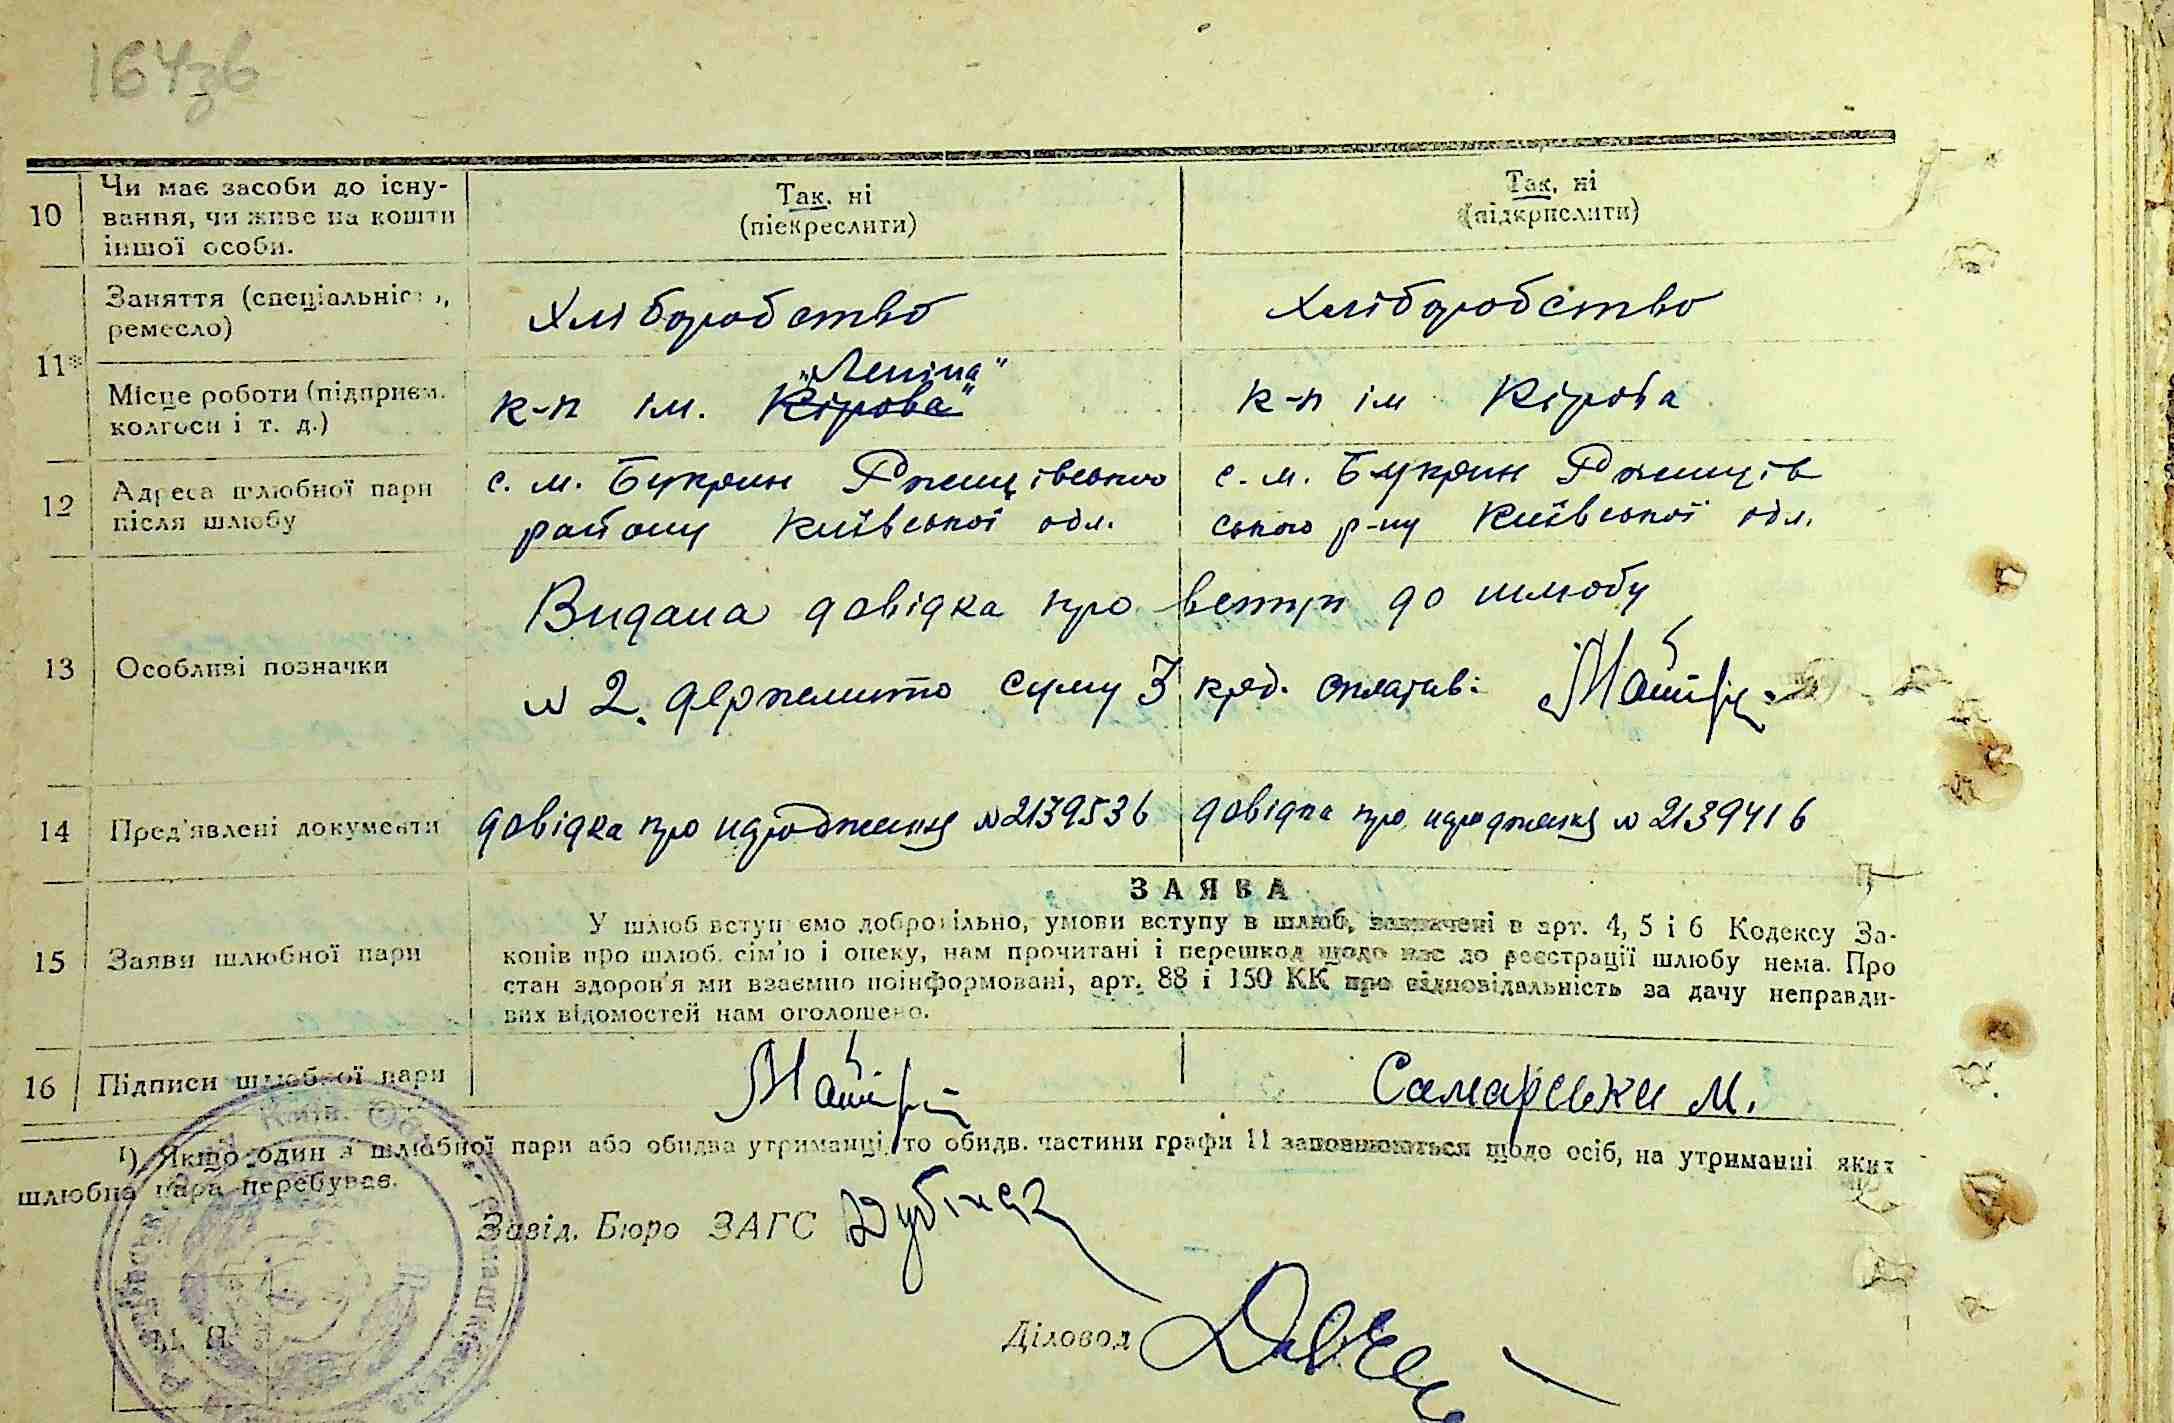 164зв
10 Чи має засоби до існу-
вання, чи живе на кошти
іншої особи.
Так, ні
(піекреслити)
Так, ні
(підкрислити)
11*
Заняття (спеціальність,
ремесло)
Хліборобство
Хліборобство
Місце роботи (підприєм.
колгосп і т. д.)
"Леніна"
к-п ім. Кірова"
к-п ім Кірова
12 Адреса шлюбної пари
після шлюбу
с. м. Букрин Ржищівського
району Київської обл.
с. м. Букрин Ржищів
ського р-ну Київської обл.
13 Особливі позначки
Видана довідка про вступ до шлюбу
№ 2. держмито суму 3 крб. сплатив:
14 Пред'явлені документи
довідка про народження №2139536
довідка про народження №2139416
15 Заяви шлюбної пари
ЗАЯВА
У шлюб вступаємо добровільно, умови вступу в шлюб, зазначені в арт. 4, 5 і 6 Кодексу За-
конів про шлюб, сім'ю і опеку, нам прочитані і перешкод щодо нас до реєстрації шлюбу нема. Про
стан здоров'я ми взаємно поінформовані, арт. 88 і 150 КК про відповідальність за дачу неправди-
вих відомостей нам оголошено.
16 Підписи шлюбної пари
Самарська М.
1) Якщо один з шлюбної пари або обидва утриманці, то обидв. частини графи 11 заповнюються щодо осіб, на утриманні яких
шлюбна пара перебуває.
Завід. Бюро ЗАГС
Діловод
Київ. Об